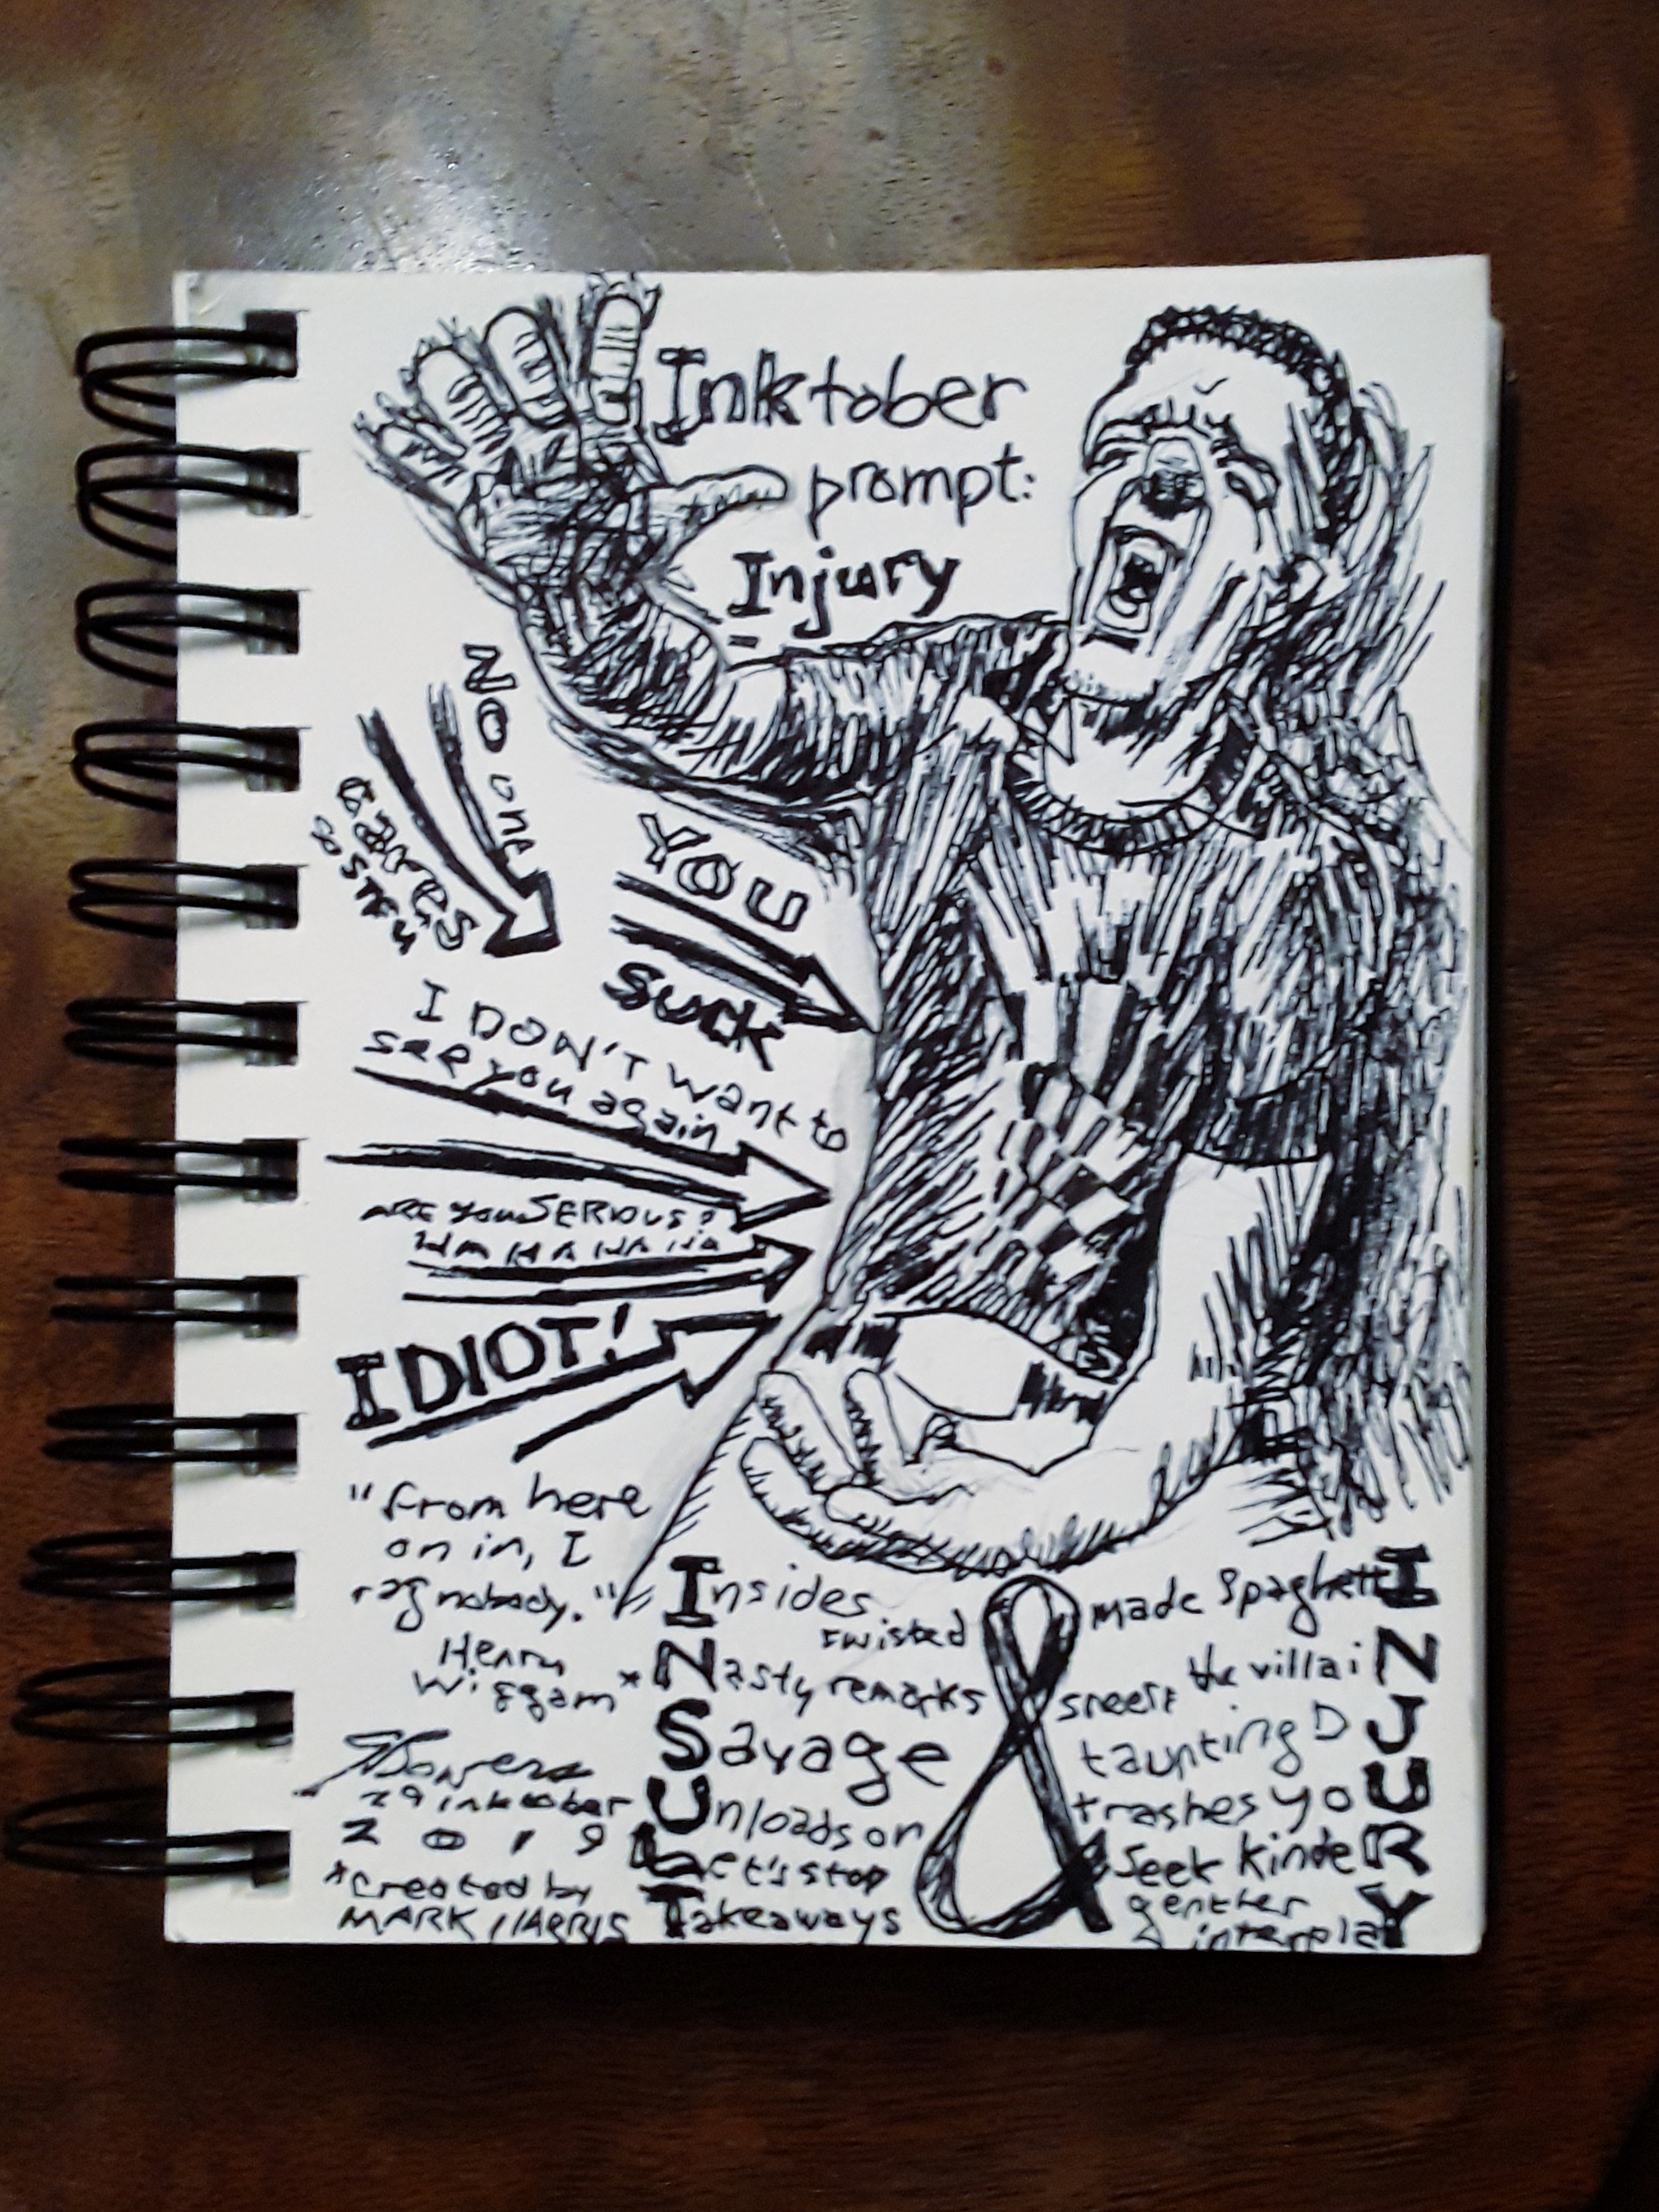 Inktober
prompt:
Injury
NO one
cares
YOU
suck
I DON'T want to
see you again
ARE YOU SERIOUS?
HA HA HA HA
IDIOT!
"From here
on in, I
rag nobody."
Henry
Wiggam*
29 inktober
2019
*created by
MARK HARRIS
Insides twisted & made spaghettI
Nasty remarks sneers the villaiN
Savage taunting J
Unloads on trashes yoU
Let's stop Seek kindeR
Takeaways genther interplaY